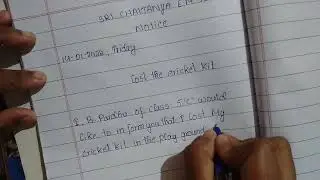 SRI CHAITANYA E.M
Notice
Friday
Lost the cricket kit
I, B. Pardhu of class 5 "C" would
like to inform you that I Lost My
cricket kit in the play ground